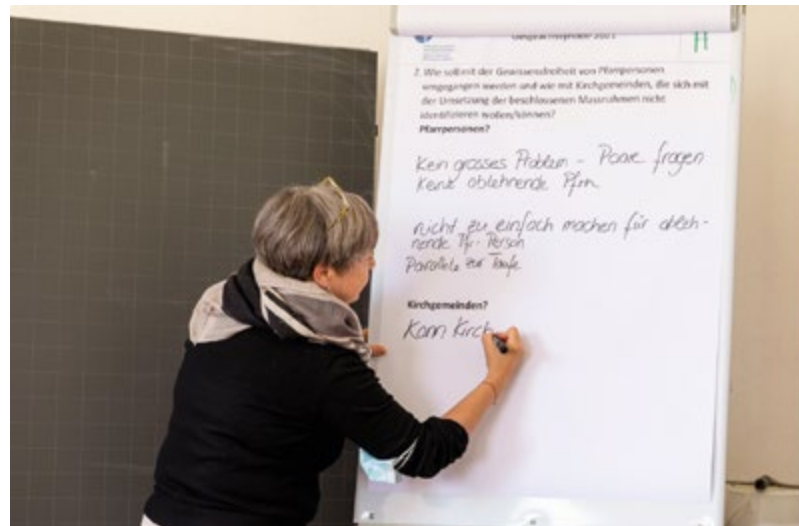 Gesprächssynode 2021
2. Wie soll mit der Gewissensfreiheit von Pfarrpersonen
umgegangen werden und wie mit Kirchgemeinden, die sich mit
der Umsetzung der beschlossenen Massnahmen nicht
identifizieren wollen/können?
Pfarrpersonen?
Kein grosses Problem - Paare fragen
keine ablehnende Pfrn
nicht zu einfach machen für ableh-
nende Pfr-Person
Parallele zur Taufe
Kirchgemeinden?
Kann Kirch